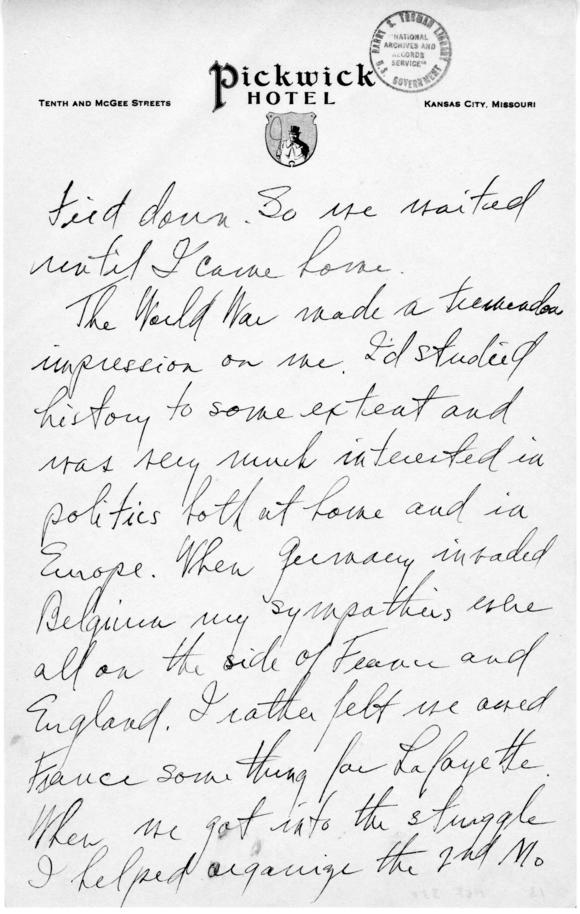 HARRY S. TRUMAN LIBRARY
"NATIONAL
ARCHIVES AND
RECORDS
SERVICE"
U.S. GOVERNMENT
Pickwick
HOTEL
TENTH AND MCGEE STREETS
KANSAS CITY, MISSOURI
tied down. So we waited
until I came home.
The World War made a tremendous
impression on me. I'd studied
history to some extent and
was very much interested in
politics both at home and in
Europe. When Germany invaded
Belgium my sympathies were
all on the side of France and
England. I rather felt we owed
France something for Lafayette.
When we got into the struggle
I helped organize the 2nd Mo